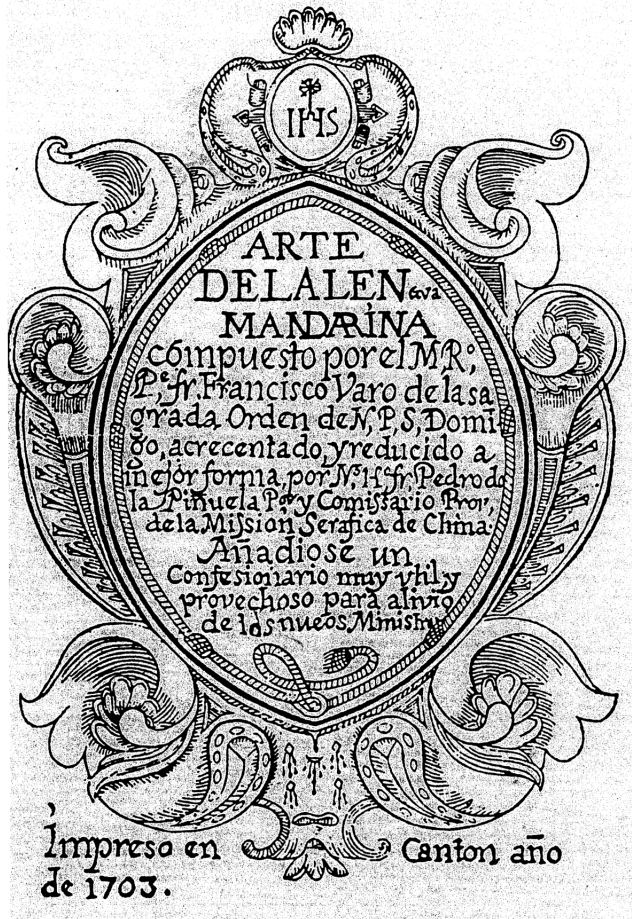 IHS
ARTE
DELALENgua
MANDARINA
cómpuesto por el M, Rº,
P,ᵉ fr. Francisco Varo de la sa
grada Orden de N, P, S, Domi
go, acrecentado, y reducido a
mejor forma, por Nº. Hº fr. Pedro de
la Piñuela Pᵒʳ y Comissario Prov,
de la Mission Serafica de China.
Añadiose un
Confesionario muy vtil, y
provechoso para alivio
de los nueos Ministros
Impreso en Canton año
de 1703.